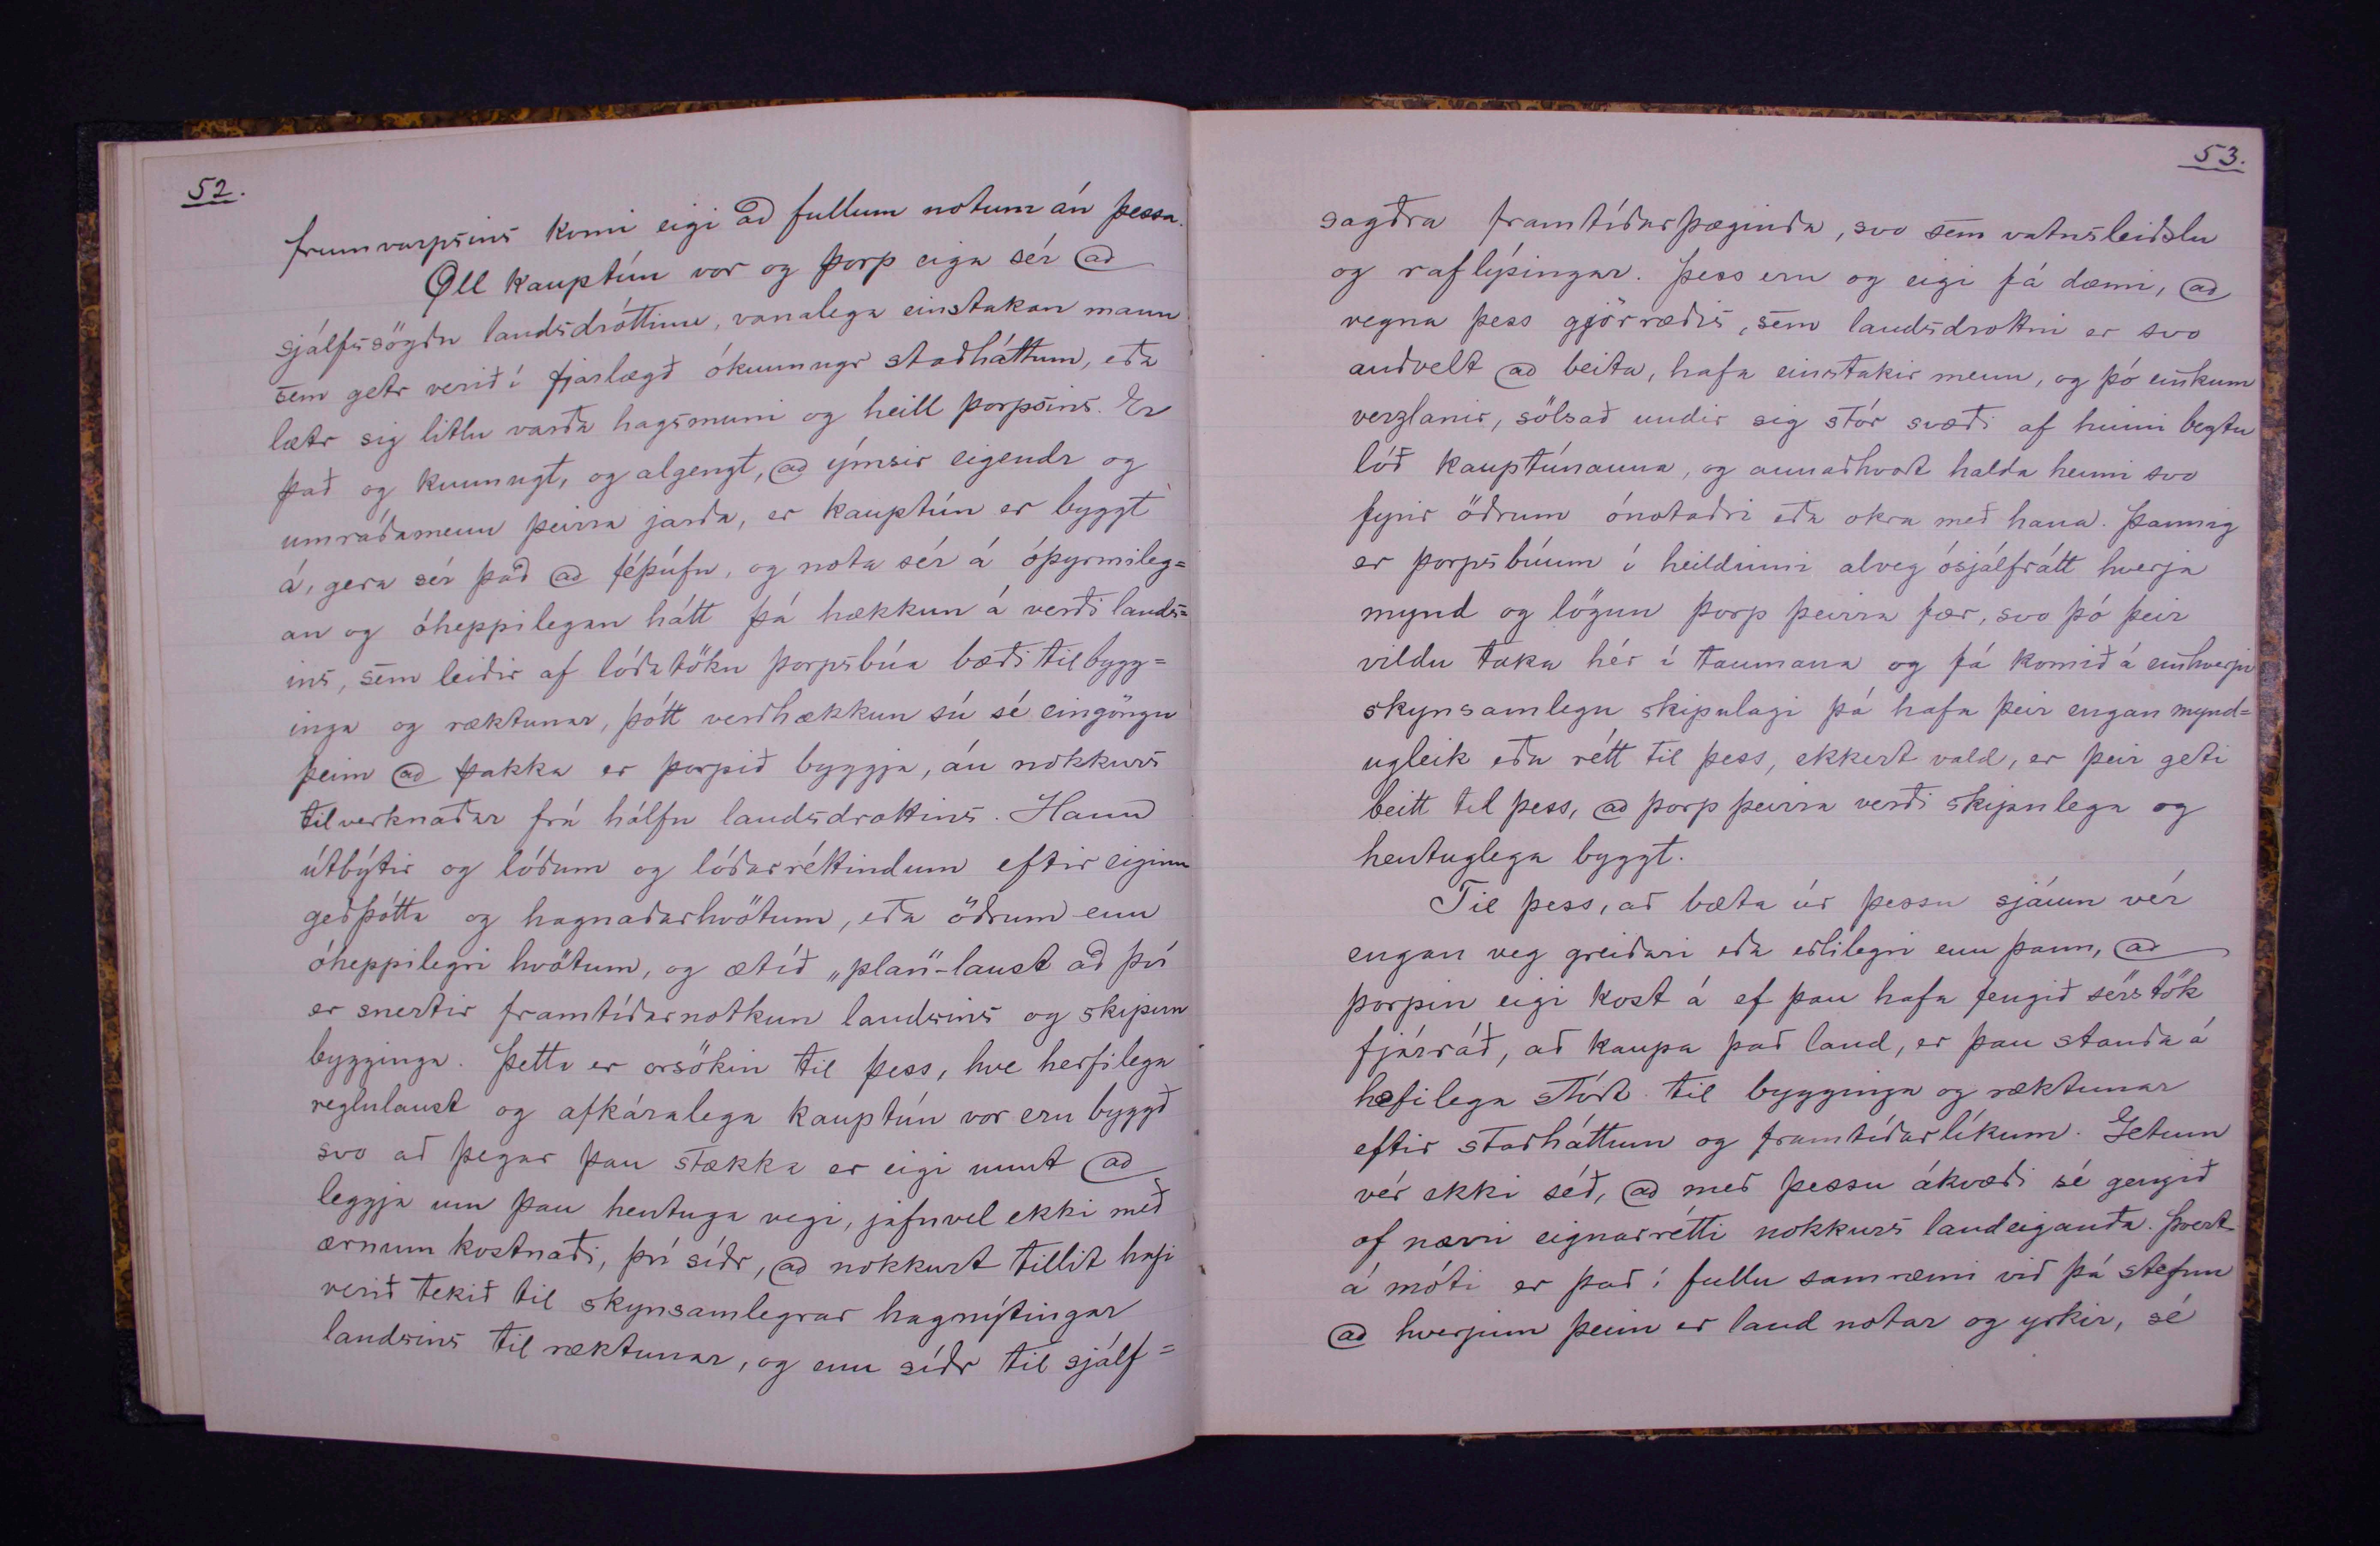 52.
frumvarpsins komi eigi að fullum notum án þessa.
Öll kauptún vor og þorp eiga sér að
sjálfsögðu landsdróttinn, vanalega einstakan mann
sem getr verið í fjarlægð ókunnugr staðháttum, eða
lætr sig litlu varða hagsmuni og heill þorpsins. Er
það og kunnugt, og algengt, að ýmsir eigendr og
umráðamenn þeirra jarða, er kauptún er byggt
á, gera sér það að féþúfu, og nota sér á óþyrmileg=
an og óheppilegan hátt þá hækkun á verði lands=
ins, sem leiðir af lóðatöku þorpsbúa bæði til bygg=
inga og ræktunar, þótt verðhækkun sú sé eingöngu
þeim að þakka er þorpið byggja, án nokkurs
tilverknaðar frá hálfu landsdrottins. Hann
útbýtir og lóðum og lóðarréttindum eftir eiginn
geðþótta og hagnaðarhvötum, eða öðrum enn
óheppilegri hvötum, og ætíð „plan“-laust að því
er snertir framtíðarnotkun landsins og skipun
bygginga. Þetta er orsökin til þess, hve herfilega
reglulaust og afkáralega kauptún vor eru byggð
svo að þegar þau stækka er eigi unnt að
leggja um þau hentuga vegi, jafnvel ekki með
ærnum kostnaði, því síðr, að nokkurt tillit hafi
verið tekið til skynsamlegrar hagnýtingar
landsins til ræktunar, og enn síðr til sjálf=
53.
sagðra framtíðarþæginda, svo sem vatnsleiðslu
og raflýsingar. Þess eru og eigi fá dæmi, að
vegna þess gjörræðis, sem landsdrottni er svo
auðvelt að beita, hafa einstakir menn, og þó einkum
verzlanir, sölsað undir sig stór svæði af hinni beztu
lóð kauptúnanna, og annaðhvort halda henni svo
fyrir öðrum ónotaðri eða okra með hana. Þannig
er þorpsbúum í heildinni alveg ósjálfrátt hverja
mynd og lögun þorp þeirra fær, svo þó þeir
vildu taka hér í taumana og fá komið á einhverju
skynsamlegu skipulagi þá hafa þeir engan mynd=
ugleik eða rétt til þess, ekkert vald, er þeir geti
beitt til þess, að þorp þeirra verði skipulega og
hentuglega byggt.
Til þess, að bæta úr þessu sjáum vér
engan veg greiðari eða eðlilegri enn þann, að
þorpin eigi kost á ef þau hafa fengið sérstök
fjárráð, að kaupa það land, er þau standa á
hæfilega stórt til bygginga og ræktunar
eftir staðháttum og framtíðarlíkum. Getum
vér ekki séð, að með þessu ákvæði sé gengið
of nærri eignarrétti nokkurs landeiganda. Þvert
á móti er það í fullu samræmi við þá stefnu
að hverjum þeim er land notar og yrkir, sé